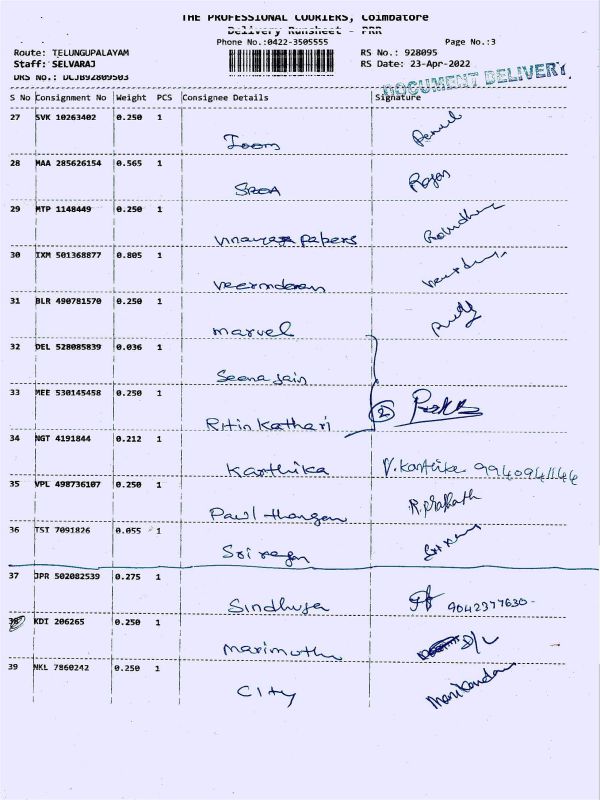 THE PROFESSIONAL COURIERS, Coimbatore
Delivery Runsheet - PRR
Phone No.:0422-3505555 Page No.:3
Route: TELUNGUPALAYAM RS No.: 928095
Staff: SELVARAJ RS Date: 23-Apr-2022
DRS No.: DCJB92809503 DOCUMENT DELIVERY.
S No Consignment No Weight PCS Consignee Details Signature
27 SVK 10263402 0.250 1
28 MAA 285626154 0.565 1
Rajan
29 MTP 1148449 0.250 1
papers
30 IXM 501368877 0.805 1
31 BLR 490781570 0.250 1
marvel
32 DEL 528085839 0.036 1
Seena Jain
33 MEE 530145458 0.250 1
Ritin Kathari 2
34 NGT 4191844 0.212 1
Karthika V. Karthika 9940941144
35 VPL 498736107 0.250 1
Paul thangam R. Prakash
36 TST 7091826 0.055 1
Sri
37 JPR 502082539 0.275 1
Sindhuja 9042377630-
38 KDI 206265 0.250 1
Marimuthu S/L
39 NKL 7860242 0.250 1
City Manikandan